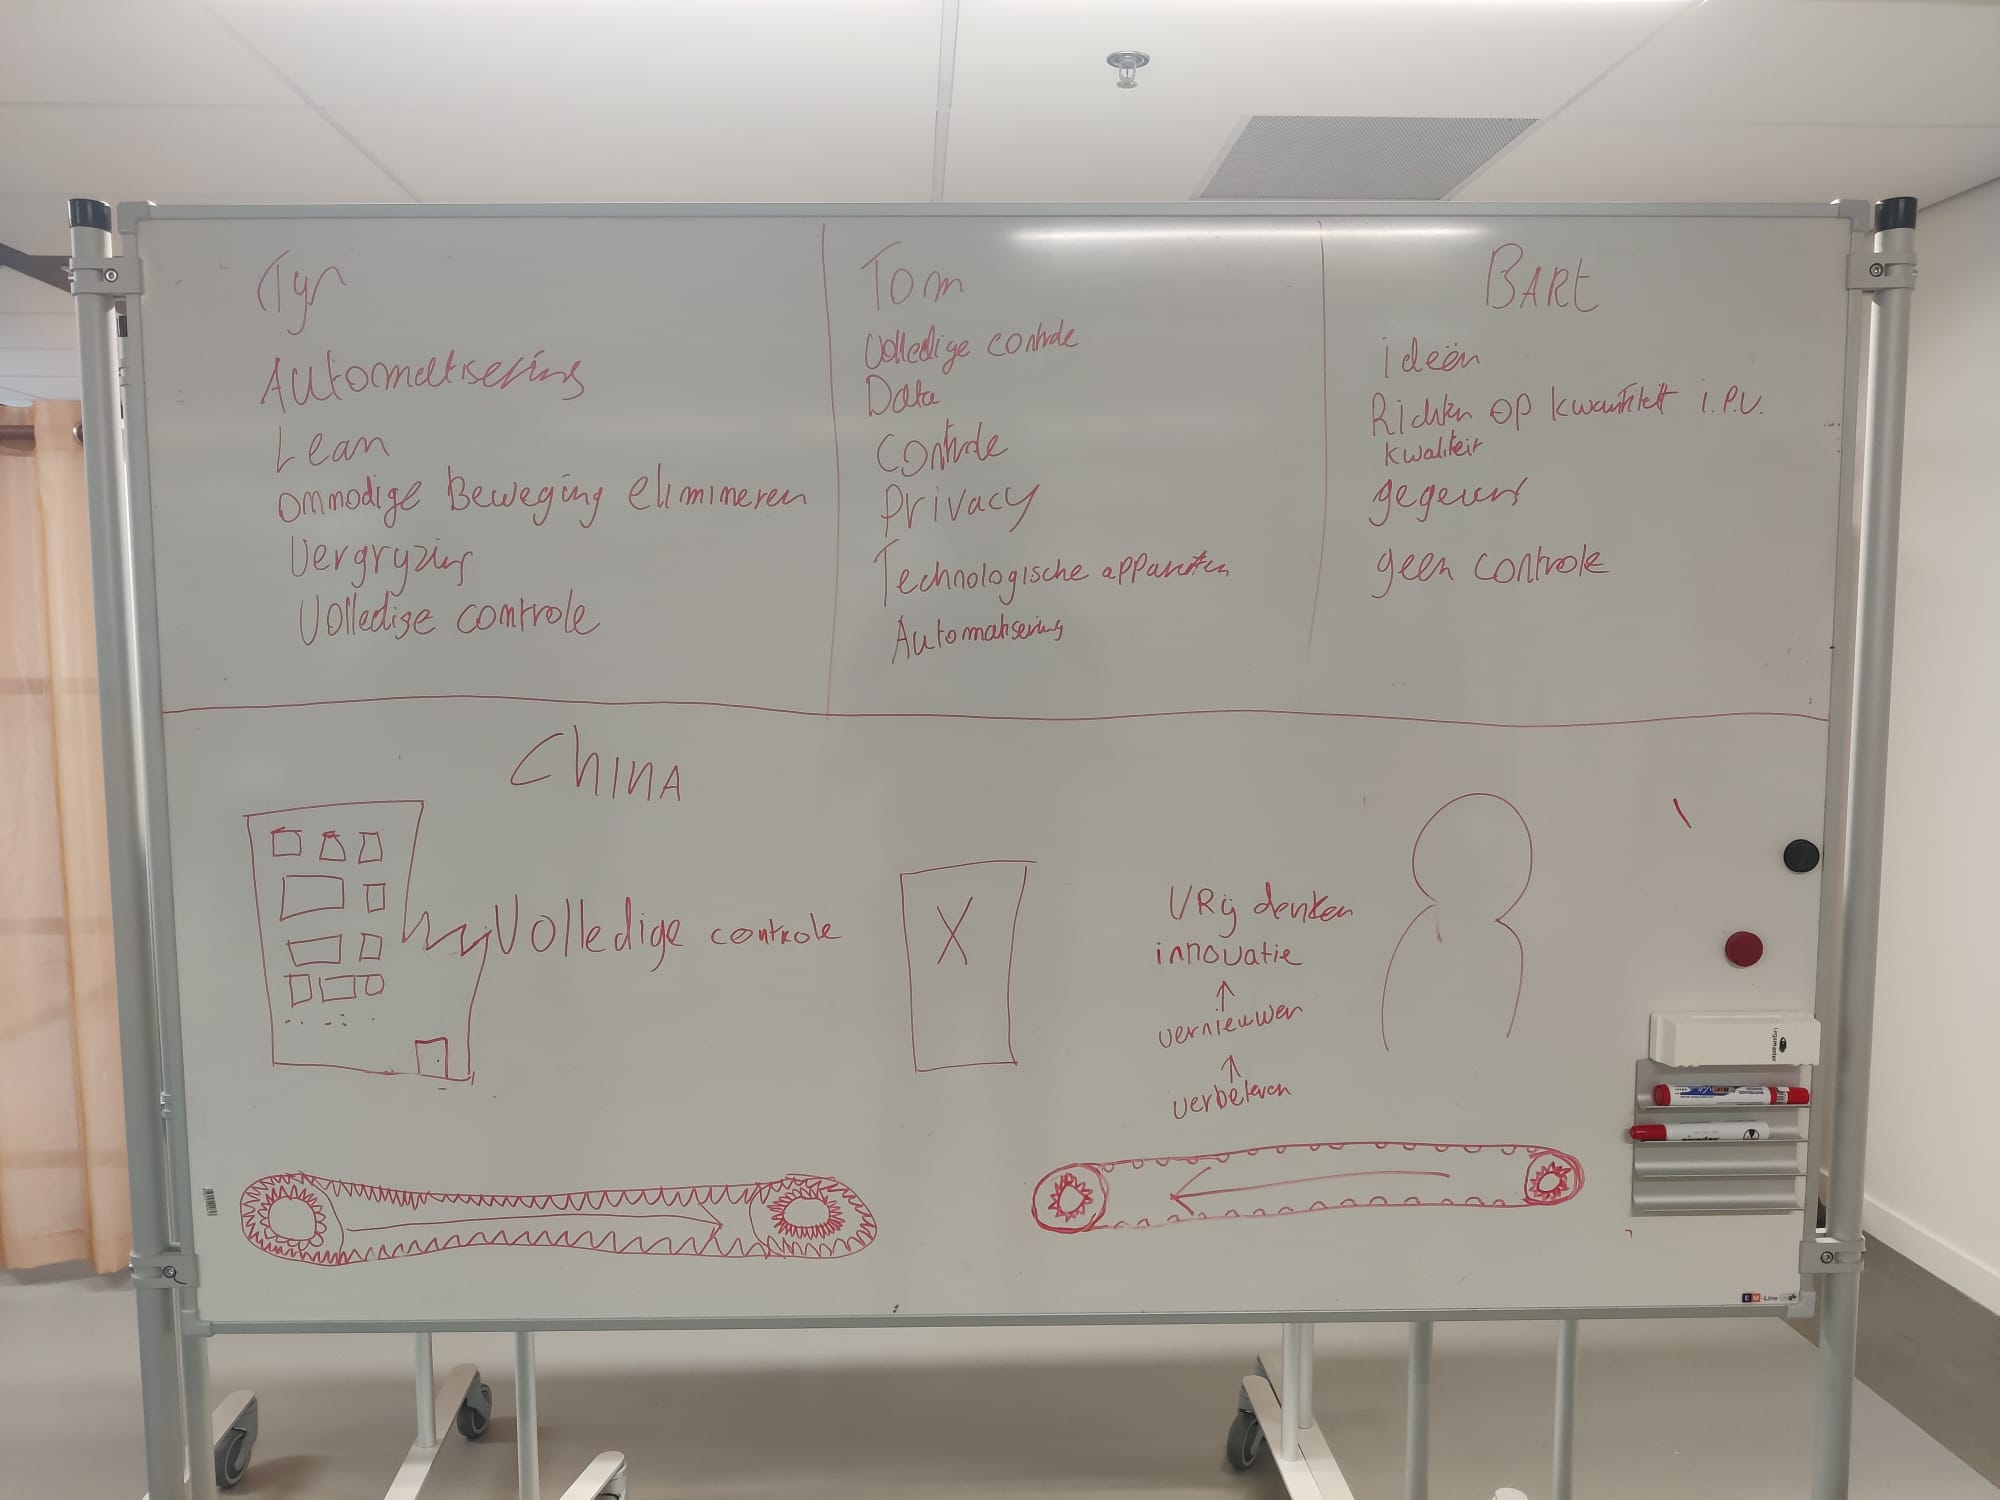 Tyn
Automatisering
Lean
ommodige Beweging elimineren
Vergryzing
Volledige controle
Tom
Volledige controle
Data
Controle
Privacy
Technologische apparaten
Automatisering
BARt
ideën
Richten op kwantiteit i.p.v.
kwaliteit
gegevens
geen controle
China
Volledige controle
X
VRij denken
innovatie
↑
vernieuwen
↑
verbeteren
Legamaster
EM-Line